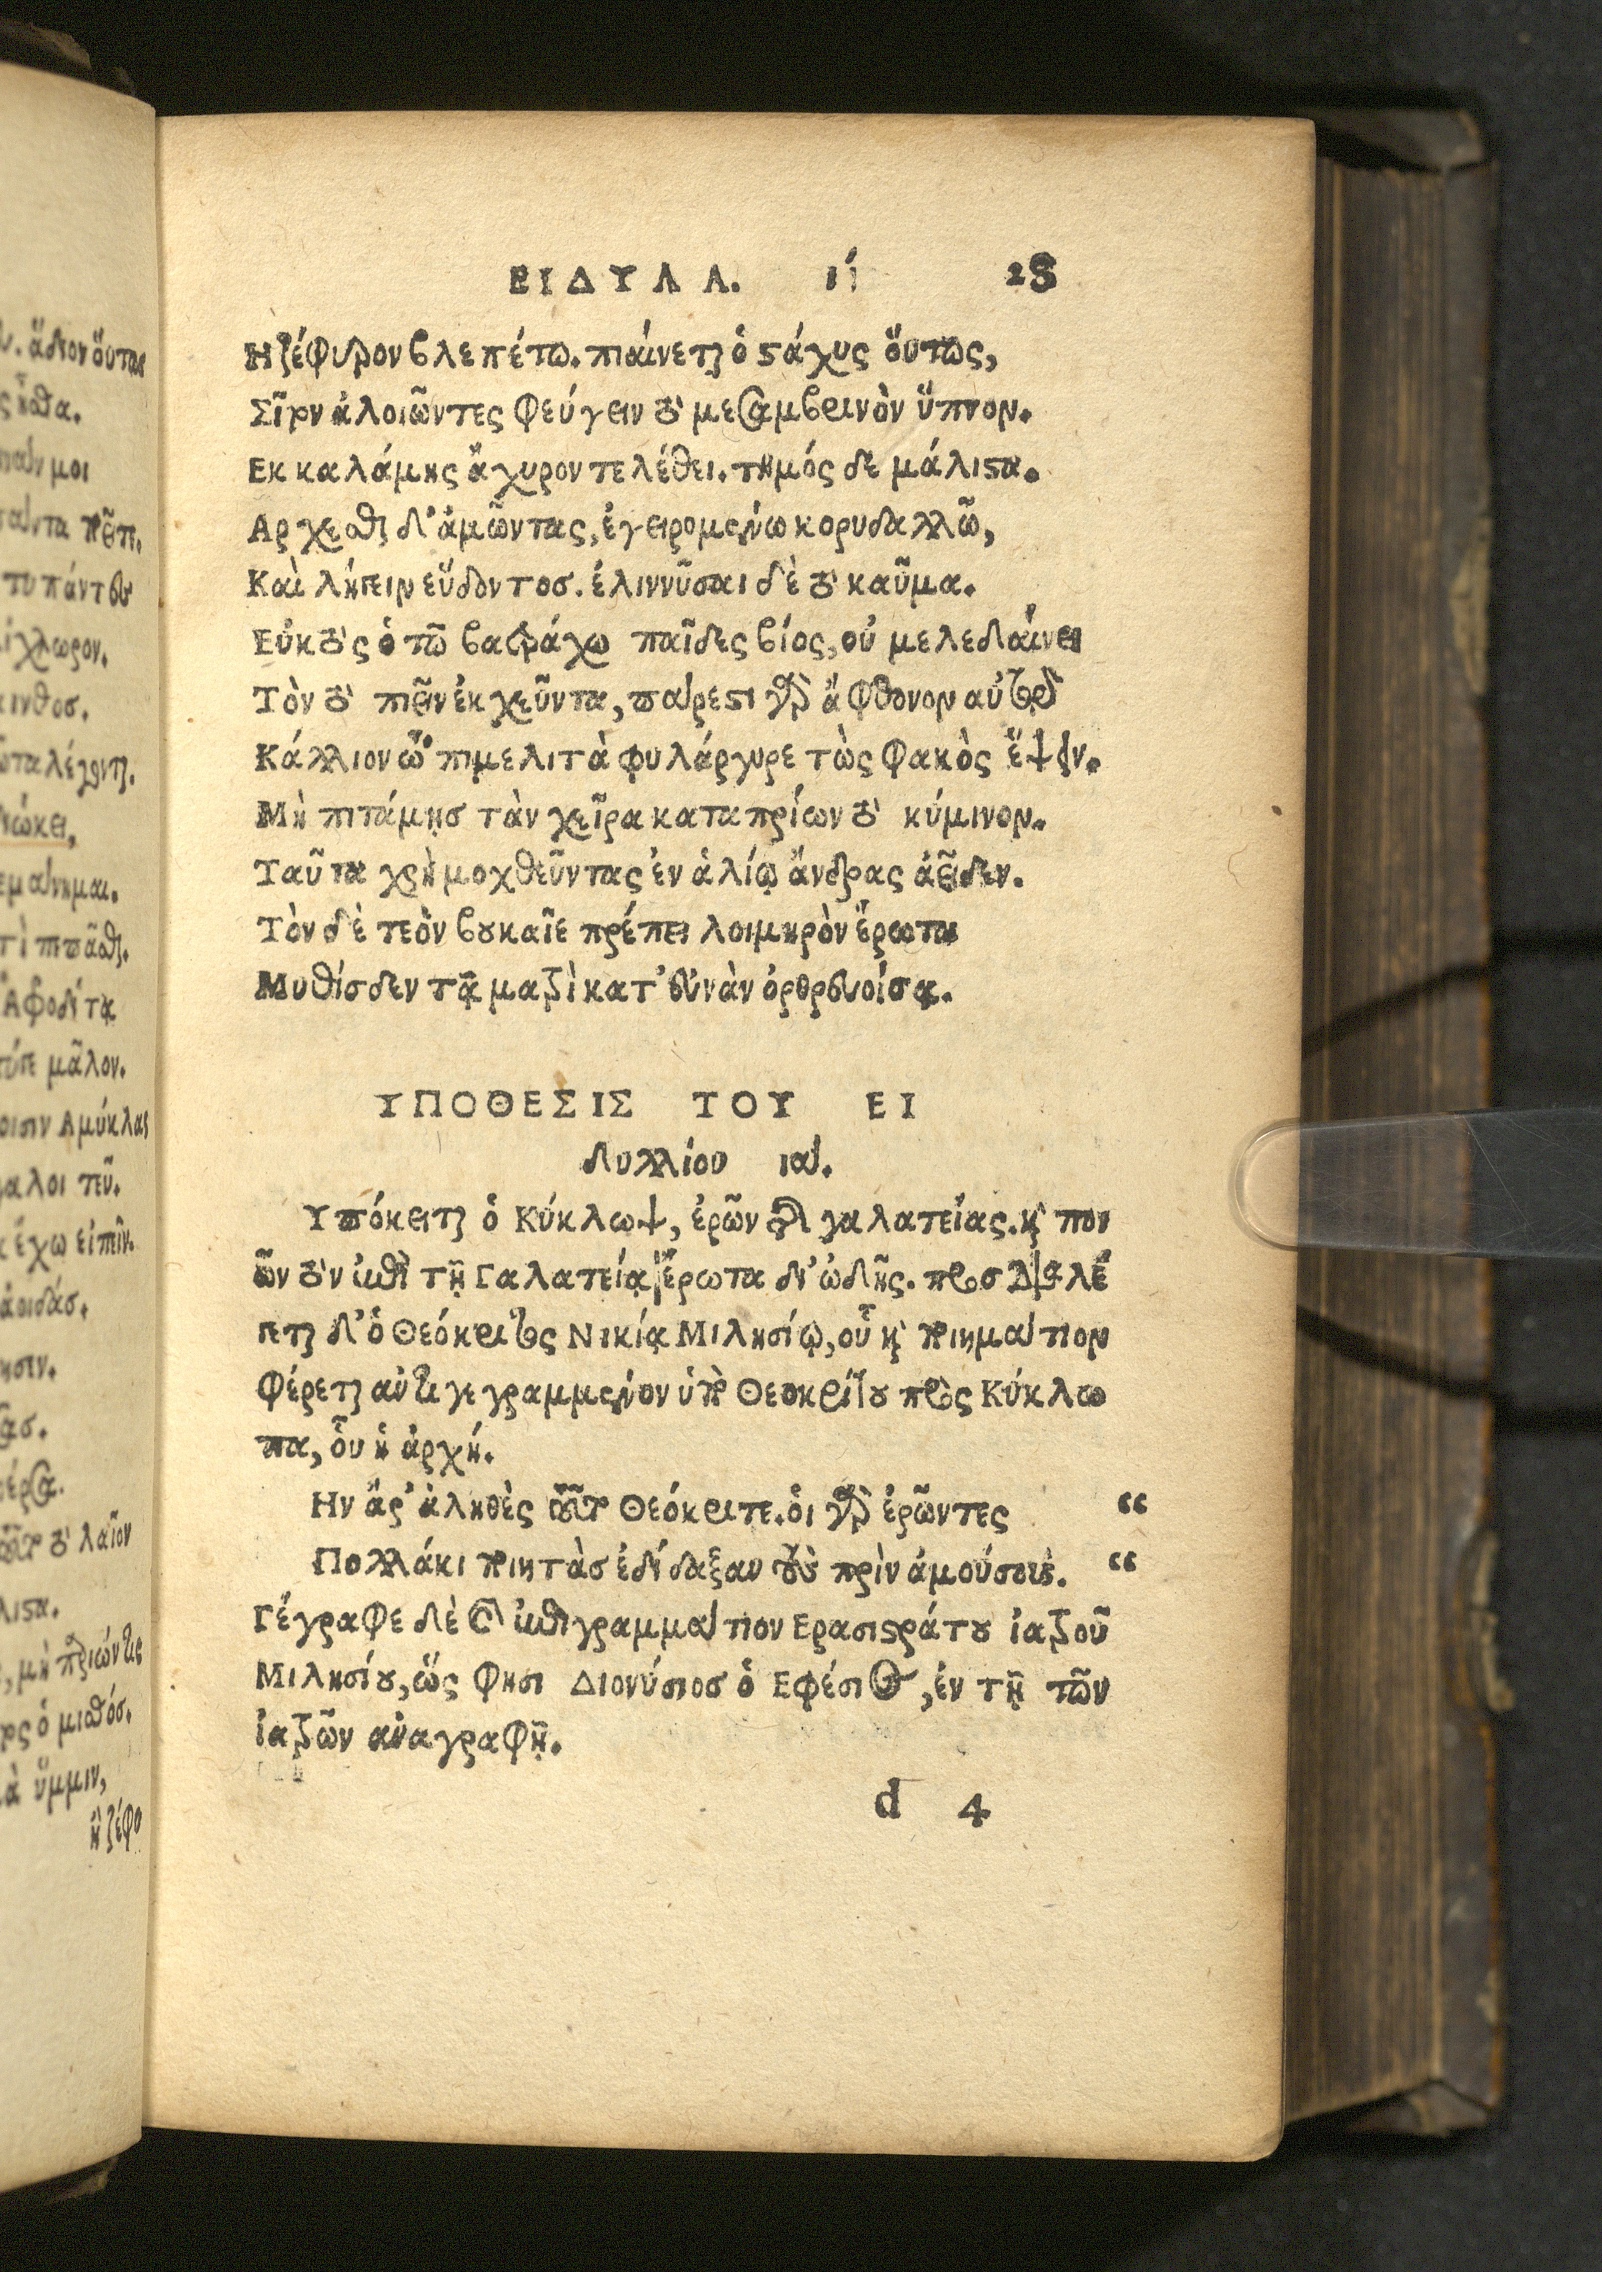 ΕΙΔΥΛΛ. ιʹ 28
Η ζέφυρον βλεπέτω. πιαίνεται ὁ στάχυς ὅυτως,
Σῖτον ἀλοιῶντες φεύγειν τὸ μεσαμβρινὸν ὕπνον.
Εκ καλάμης ἄχυρον τελέθει. τημός δε μάλιστα.
Αρχεσθαι δ' ἀμῶντας, ἐγειρομένω κορυδαλλῶ,
Καὶ λήγειν εὕδοντοσ. ἐλιννῦσαι δὲ τὸ καῦμα.
Εὐκτὸς ὁ τῶ βατράχω παῖδες βίος, οὐ μελεδαίνει
Τὸν τὸ πιεῖν ἐκχεῦντα, πάρεστι γὰρ ἄφθονον αὐτῷ
Κάλλιον ὦ 'πιμελιτὰ φυλάργυρε τὼς φακὸς ἕψειν.
Μὴ πιτάμῃσ τὰν χεῖρα καταπρίων τὸ κύμινον.
Ταῦτα χρὴ μοχθεῦντας ἐν ἁλίῳ ἄνδρας ἀείδεν.
Τὸν δὲ τεὸν βουκαῖε πρέπει λοιμηρὸν ἔρωτα
Μυθίσδεν τᾷ μαζὶ κατ' εὐνὰν ὀρθρευοίσᾳ.
ΥΠΟΘΕΣΙΣ ΤΟΥ ΕΙ
δυλλίου ιαʹ.
Υπόκειται ὁ Κύκλωψ, ἐρῶν τῆς γαλατείας. καὶ πον
ῶν τὸν ἐπὶ τῇ Γαλατείᾳ ἔρωτα δι' ὠδῆς. προσδιαλέ
γεται δ' ὁ Θεόκριτος Νικίᾳ Μιλησίῳ, οὗ καὶ ποιημάτιον
φέρεται αὐτὸ γεγραμμένον ὑπὸ Θεοκρίτου πρὸς Κύκλω
πα, ὗ ἡ ἀρχή.
Ην ἄρ' ἀληθὲς τοῦτο Θεόκριτε. ὁι γὰρ ἐρῶντες “
Πολλάκι ποιητὰσ ἐδίδαξαν τοὺς πρὶν ἀμούσους. “
Γέγραφε δὲ τὸ ἐπιγραμμάτιον Ερασιστράτου ἰατροῦ
Μιλησίου, ὥς φησι Διονύσιοσ ὁ Εφέσιος, ἐν τῇ τῶν
ἰατρῶν αναγραφῇ.
d 4